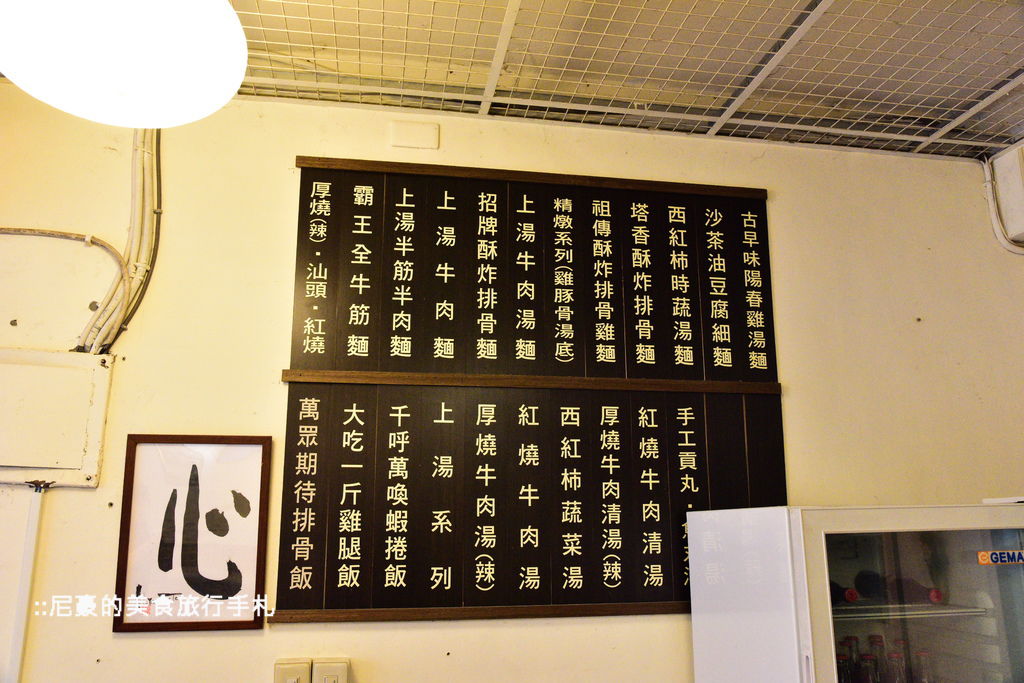 古早味陽春雞湯麵
沙茶油豆腐細麵
西紅柿時蔬湯麵
塔香酥炸排骨麵
祖傳酥炸排骨雞麵
精燉系列(雞豚骨湯底)
上湯牛肉湯麵
招牌酥炸排骨麵
上湯牛肉麵
上湯半筋半肉麵
霸王全牛筋麵
厚燒(辣)·汕頭·紅燒
手工貢丸·
紅燒牛肉清湯
厚燒牛肉清湯(辣)
西紅柿蔬菜湯
紅燒牛肉湯
厚燒牛肉湯(辣)
上湯系列
千呼萬喚蝦捲飯
大吃一斤雞腿飯
萬眾期待排骨飯
心
::尼豪的美食旅行手札
GEMA